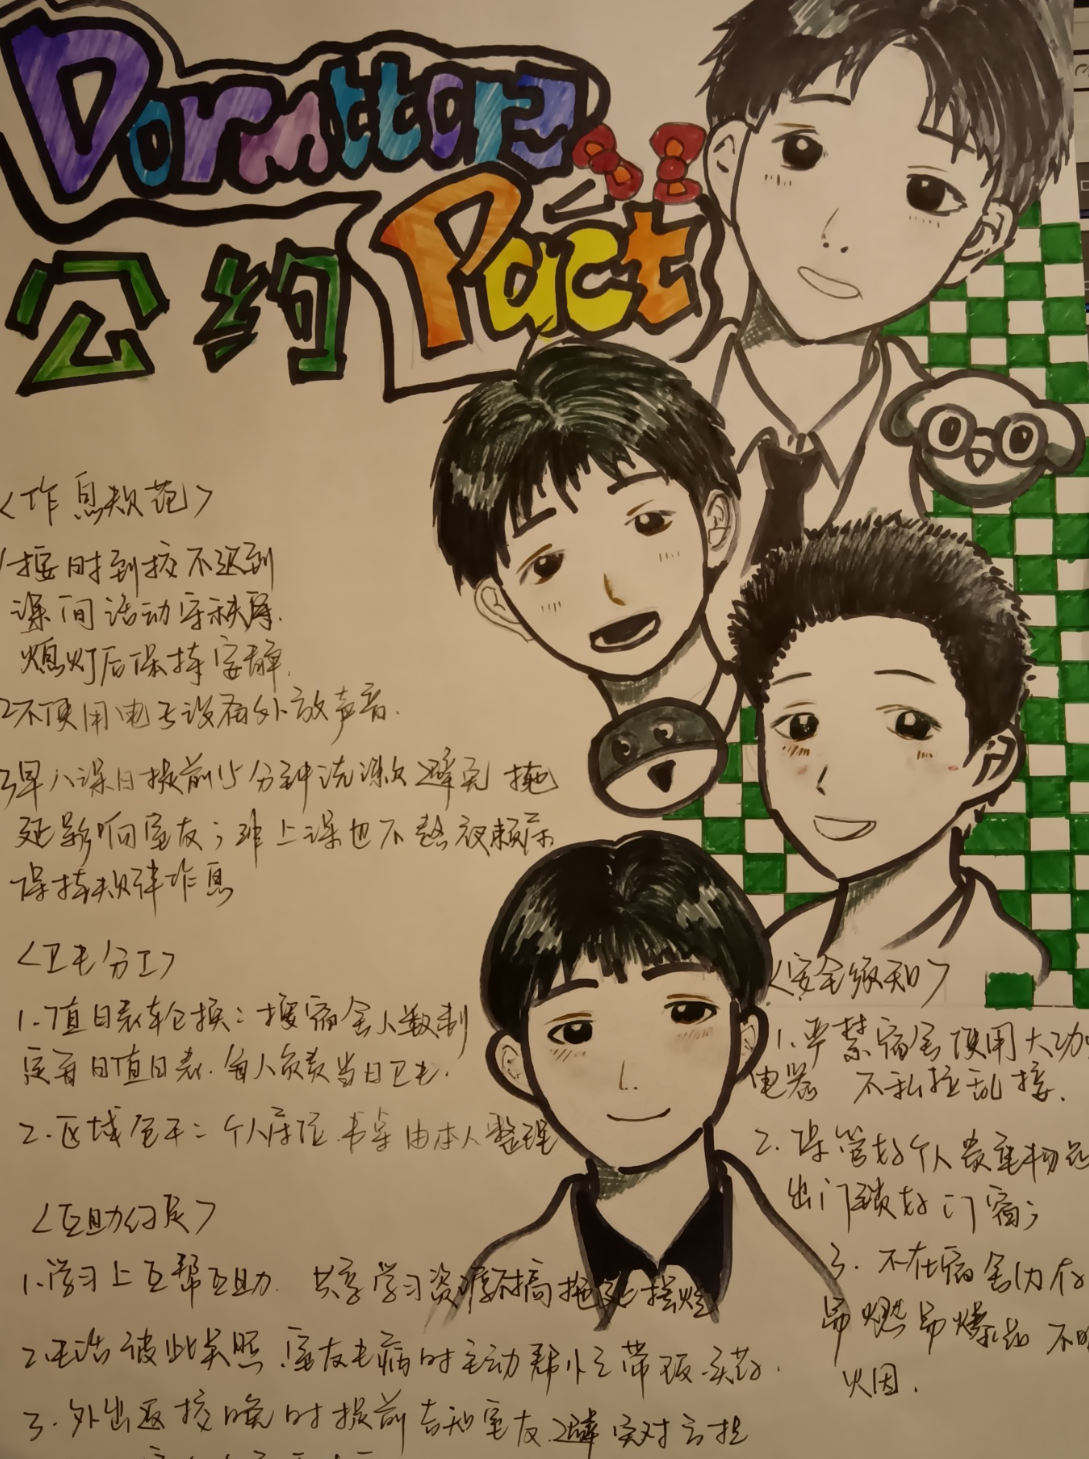 Dormitory
Pact
公约
<作息规范>
1按时到校不迟到
课间活动守秩序.
熄灯后保持安静.
2不使用电子设备外放声音.
3早八课日提前15分钟洗漱 避免拖
延影响室友; 非上课也不熬夜赖床
保持规律作息
<卫生分工>
1.值日表轮换: 按宿舍人数制
定每日值日表. 每人负责当日卫生.
2.区域包干: 个人床位 书桌由本人整理
<互助付反>
1.学习上互帮互助. 共享学习资源不搞拖延
2.生活彼此关照. 室友生病时主动帮忙带饭.买药.
3.外出返校晚时提前告知室友.避免对方担
<安全须知>
1.严禁宿舍使用大功
电器 不私拉乱接.
2.保管好个人贵重物品
出门锁好门窗;
3.不在宿舍内存
易燃易爆品 不
火因.